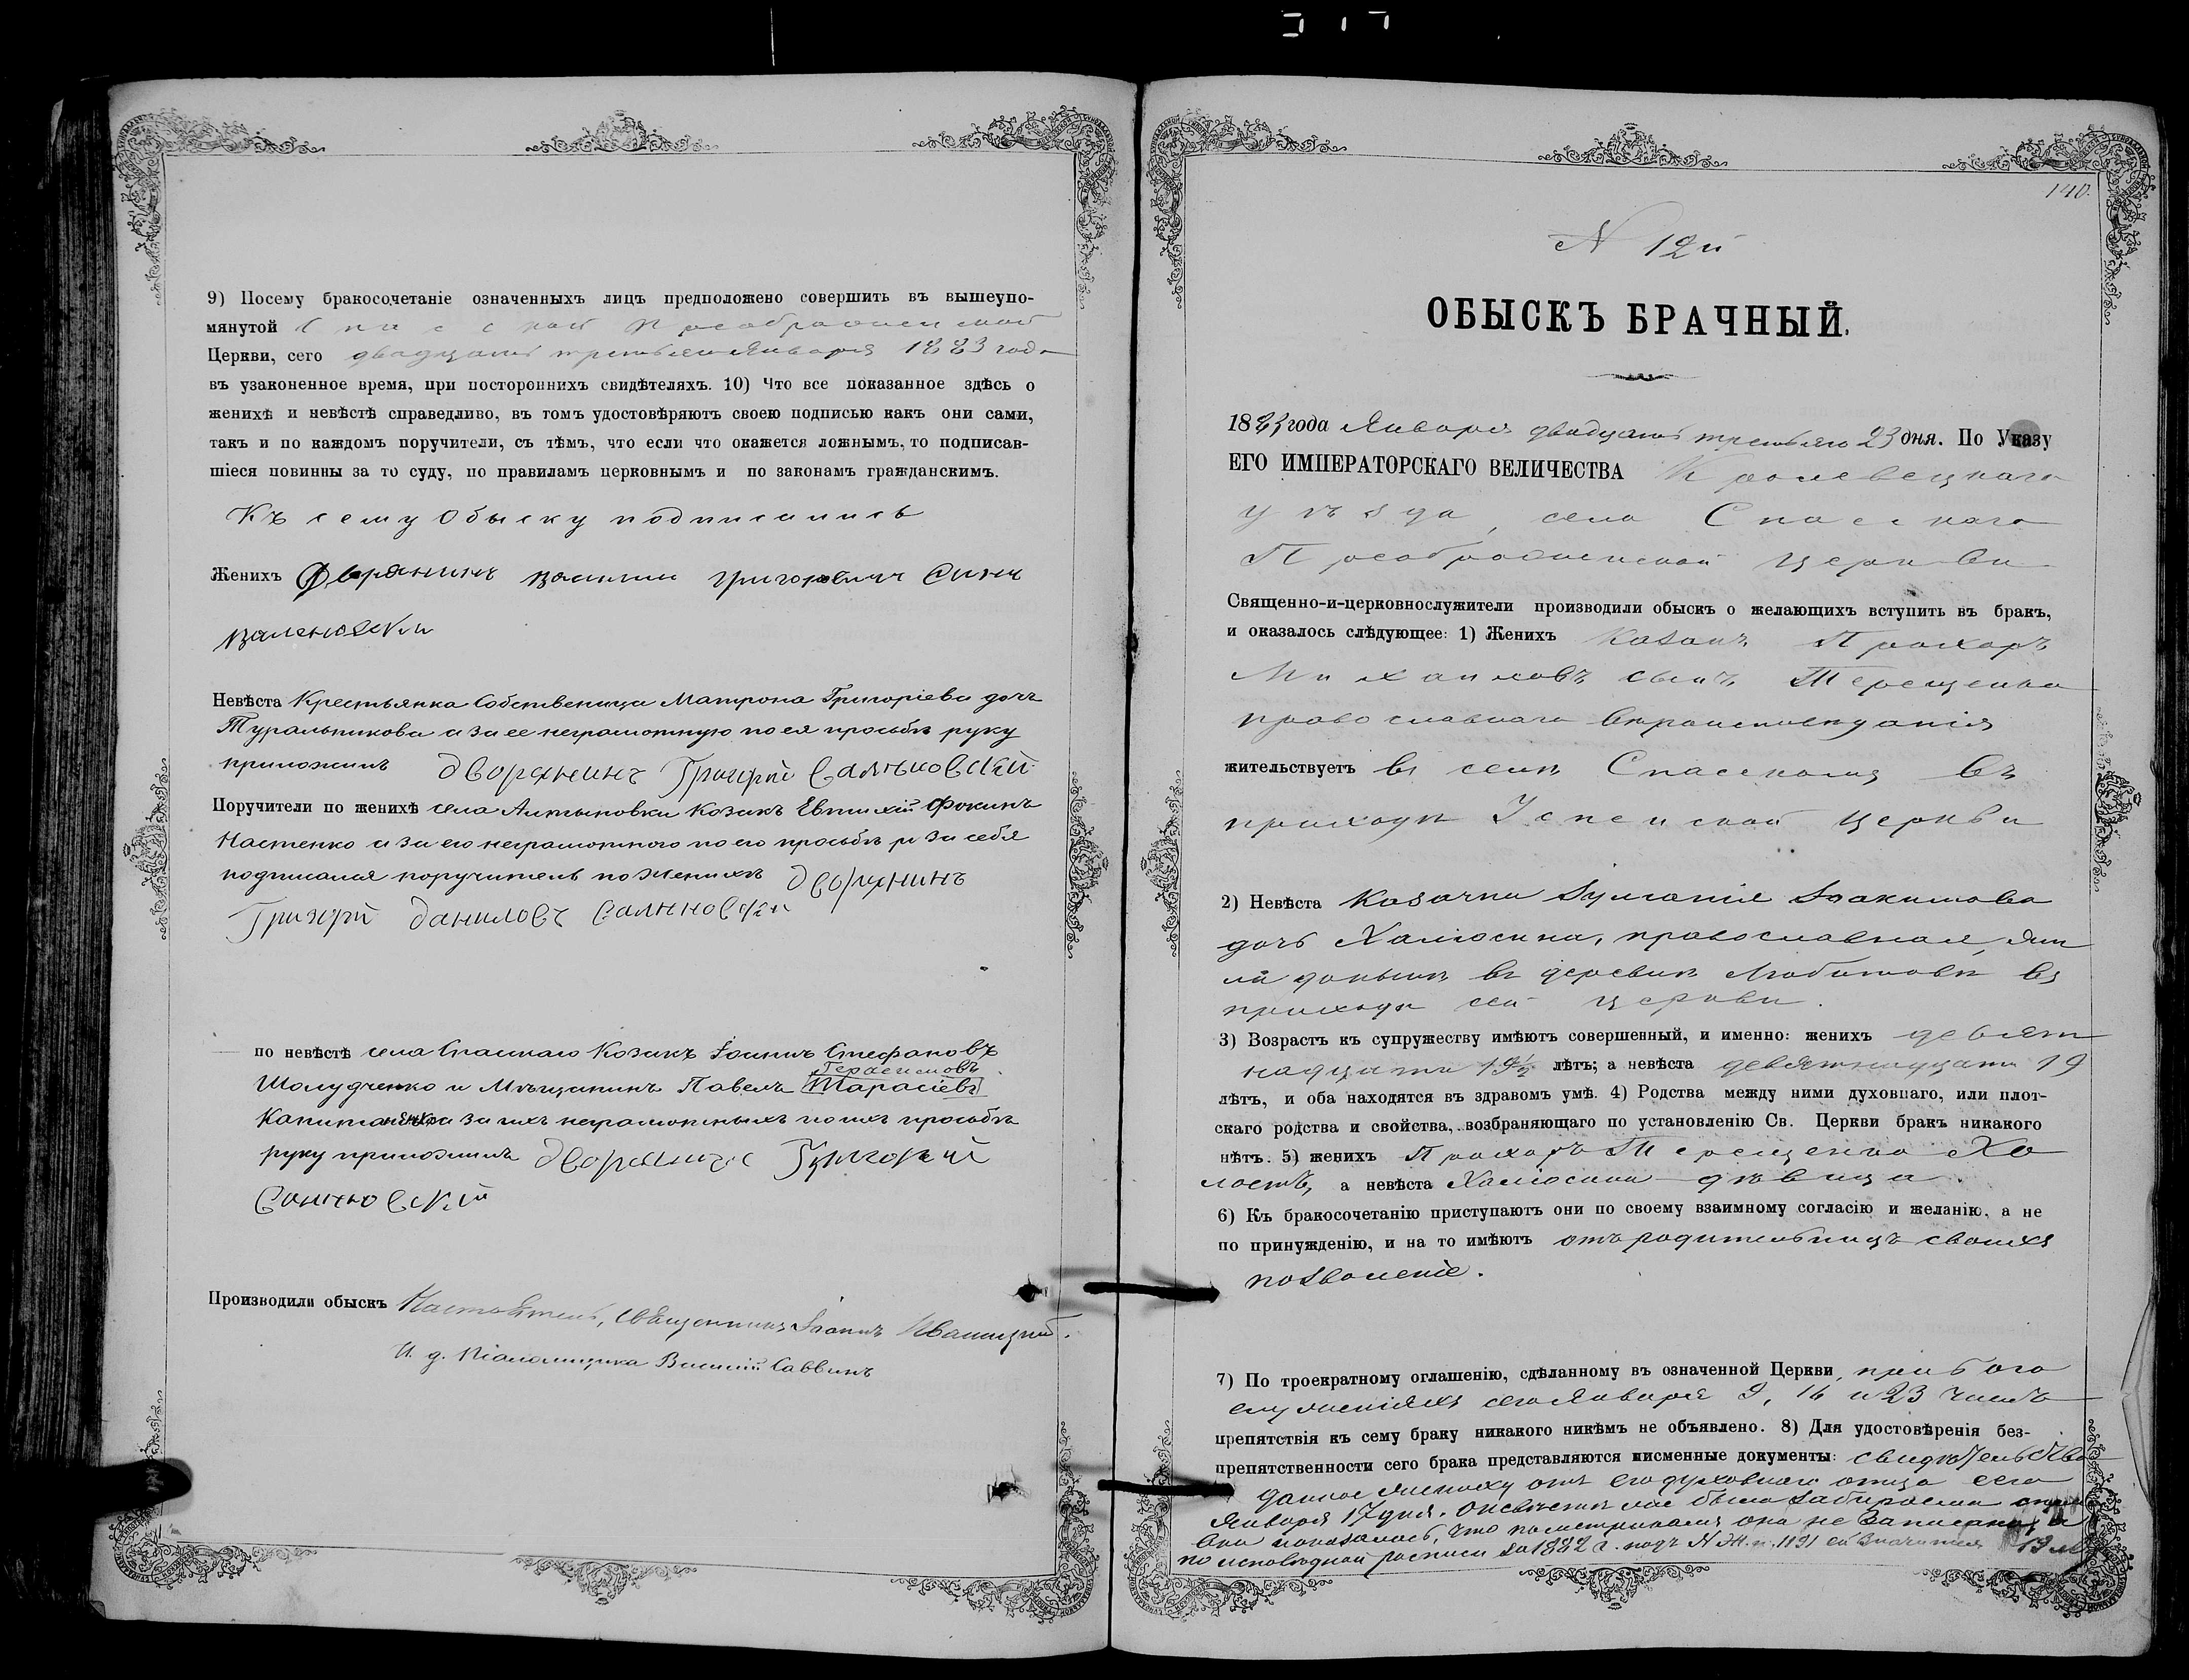 9) Посему бракосочетаніе означенныхъ лицъ предположено совершить въ вышеупо-
мянутой Спасской Преображенской
Церкви, сего двадцать третьяго Января 1883 года
въ узаконенное время, при постороннихъ свидѣтеляхъ. 10) Что все показанное здѣсь о
женихѣ и невѣстѣ справедливо, въ томъ удостовѣряютъ своею подписью какъ они сами,
такъ и по каждомъ поручители, съ тѣмъ, что если что окажется ложнымъ, то подписав-
шіеся повинны за то суду, по правиламъ церковнымъ и по законамъ гражданскимъ.
Къ сему Обыску подписались
Женихъ Дворянинъ Василии Григоревич Синъ
Невѣста Крестьянка Собственица Матрона Григоріева дочь
Туральникова а за ее неграмотную по ея просьбѣ руку
приложилъ дворянинъ Григорій Сальковскій
Поручители по женихѣ села Алтыновки Козакъ Евтихій Фокинъ
Настенко а за его неграмотного по его просьбѣ и за себя
подписался поручитель по женихѣ дворянинъ
Григорій Даниловъ Сальковскій
по невѣстѣ села Спаскаго Козакъ Іоаннъ Стефановъ
Герасимовъ
Шолудченко и Мѣщанинъ Павелъ Тарасіевъ
а за ихъ неграмотныхъ по ихъ просьбѣ
руку приложилъ дворянинъ Григорій
Сальковскій
Производили обыскъ Настоятель, священникъ Іоаннъ
И. д. Псаломщика Василій Саввинъ
140.
N 12й
ОБЫСКЪ БРАЧНЫЙ.
1883 года Января двадцать третьяго 23 дня. По Указу
ЕГО ИМПЕРАТОРСКАГО ВЕЛИЧЕСТВА Кролевецкаго
уѣзда, села Спасскаго
Преображенской церкви
Священно-и-церковнослужители производили обыскъ о желающихъ вступить въ бракъ,
и оказалось слѣдующее: 1) Женихъ Козакъ Прохоръ
Михаиловъ сынъ Терещенко
православнаго вѣроисповѣданія
жительствуетъ въ селѣ Спасскомъ въ
приходѣ Успенской церкви
2) Невѣста Козачка Іуліанія Іоакимова
дочь Халюсина, православная, жи
ла донынѣ въ деревнѣ Любитовѣ въ
приходѣ сей церкви.
3) Возрастъ къ супружеству имѣютъ совершенный, и именно: женихъ девят
надцати 19½ лѣтъ; а невѣста девятнадцати 19
лѣтъ, и оба находятся въ здравомъ умѣ. 4) Родства между ними духовнаго, или плот-
скаго родства и свойства, возбраняющаго по установленію Св. Церкви бракъ никакого
нѣтъ. 5) женихъ Прохоръ Терещенко хо
лостъ, а невѣста Халюсина дѣвица.
6) Къ бракосочетанію приступаютъ они по своему взаимному согласію и желанію, а не
по принужденію, и на то имѣютъ отъ родительницъ своихъ
позволеніе.
7) По троекратному оглашенію, сдѣланному въ означенной Церкви, при бого
служеніяхъ сего Января 9, 16 и 23 числъ
препятствія къ сему браку никакого никѣмъ не объявлено. 8) Для удостовѣренія без-
препятственности сего брака представляются писменные документы: свидѣтельство
данное жениху отъ его духовнаго отца сего
Января 17 дня. О невѣстѣ же была забираема справка
она показалась, что по метрикамъ она не записана, а
по исповѣдной росписи за 1882 г. подъ N Ж. п. 1191 ей значится 19 лѣтъ